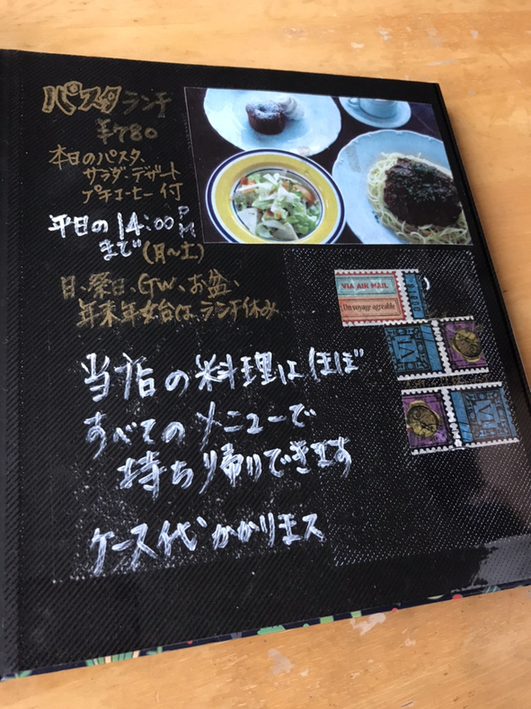 パスタランチ
￥780
本日のパスタ、
サラダ・デザート
プチコーヒー付
平日の14:00PM
まで(月〜土)
日、祭日、GW、お盆、
年末年始はランチ休み
VIA AIR MAIL
Un voyage agreable
当店の料理はほぼ
すべてのメニューで
持ち帰りできます
ケース代かかりマス